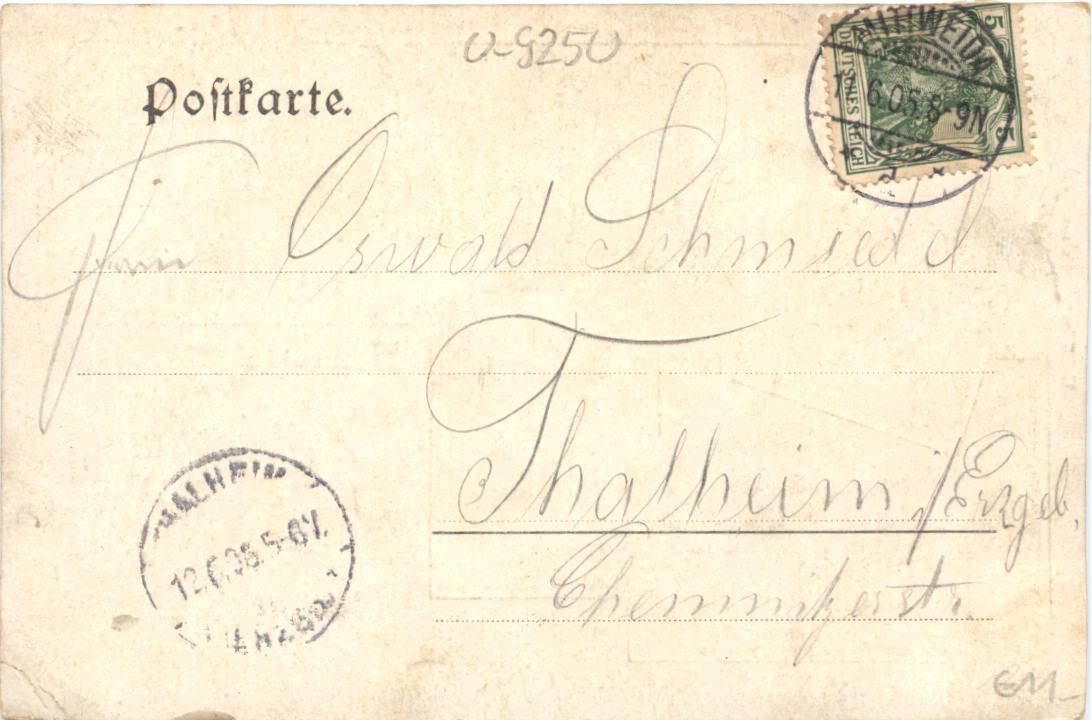 U-9250
Postkarte.
5
DEUTSCHES REICH
5
6.05.8-9N
Herrn Oswald Schmiedel
Thalheim i/Erzgeb.
Chemnitzerstr.
THALHEIM
12.6.05.5-6V.
(ERZGEB.)
€11-